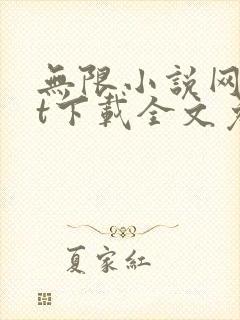 無限小説网
t下載全文
夏家紅